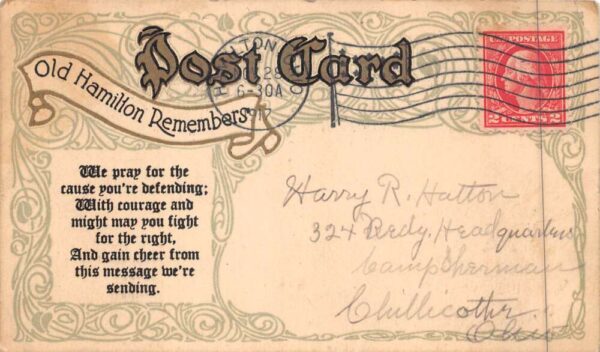 Post Card
Old Hamilton Remembers
HAMILTON
28
6-30A
1917
U.S. POSTAGE
2 CENTS 2
We pray for the
cause you're defending;
With courage and
might may you fight
for the right,
And gain cheer from
this message we're
sending.
Harry R. Hutton
324 Redy. Headquarters
Camp Sherman
Chillicothe,
Ohio